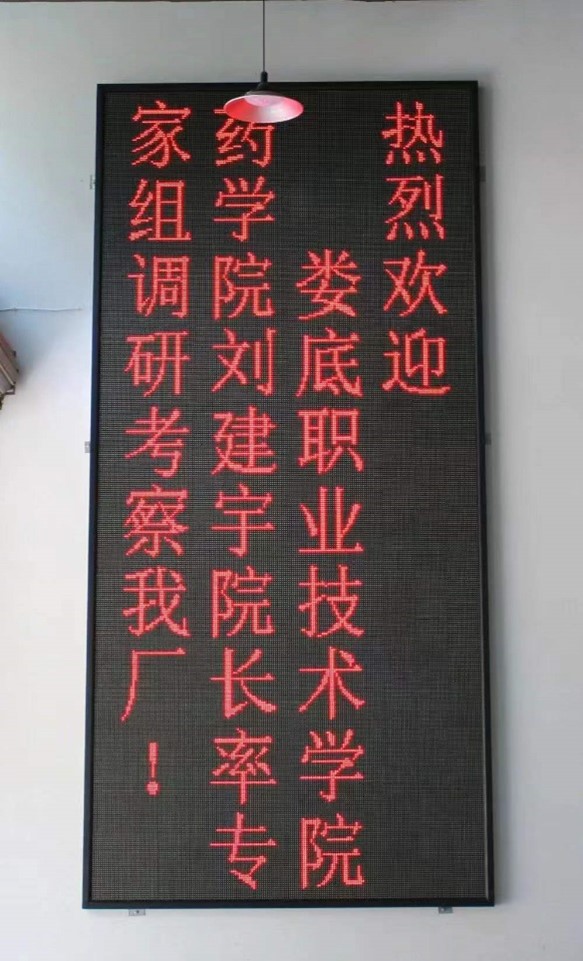 热烈欢迎
娄底职业技术学院
药学院刘建宇院长率专
家组调研考察我厂！